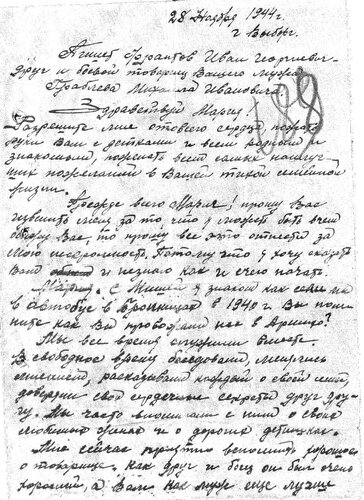 28 Ноября 1944 г.
г. Выборг.
Пишет Франтов Иван Георгиевич
друг и боевой товарищ Вашего мужа
Грабаева Михаила Ивановича.
188
Здравствуй Мария!
Разрешите мне от всего сердца пожать
руки Вам с детками и всем родным и
знакомым, пожелать всем самых наилуч-
ших пожеланий в Вашей тихой семейной
жизни.
Прежде всего Мария! прошу Вас
извинить меня за то что я может быть чем
Вас, то прошу все это отнести за
мою нескромность. Потому что я хочу сказать
Вам и незнаю как и с чего начать.
Мария, с Мишей я знаком как сели мы
в автобус в Бронницах в 1940 г. Вы пом-
ните как Вы провожали нас в Армию?
Мы все время служили вместе.
В свободное время беседовали, делились
мыслями, рассказывали каждый о своей семье,
доверяли свои сердечные секреты друг дру-
гу. Мы часто вспоминали с ним о своих
любимых женах и о дорогих детишках.
Мне сейчас приятно вспомнить хорошего
товарища. Как друг и боец он был очень
хороший, а Вам как муж еще лучше